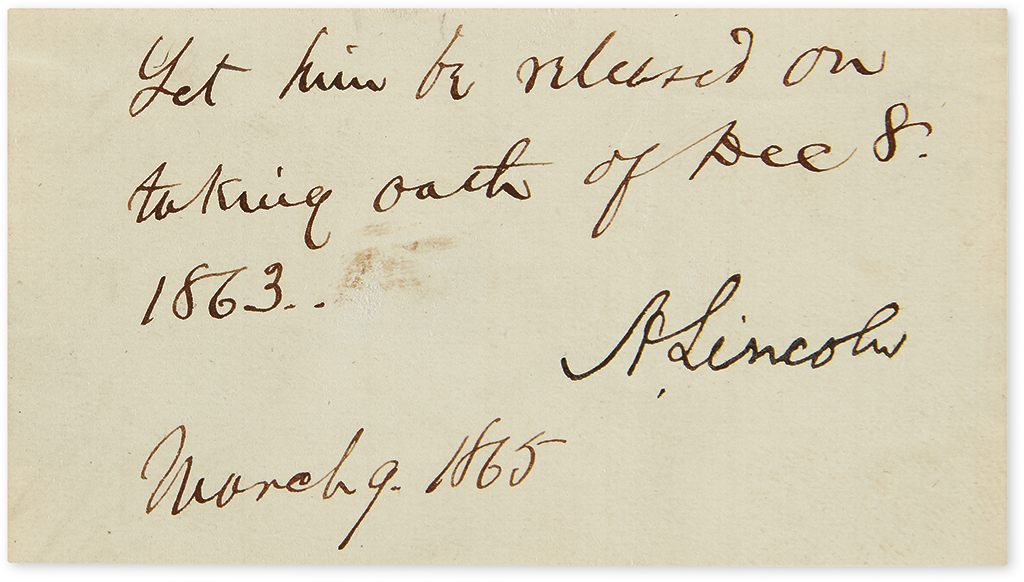 Let him be released on
taking oath of Dec 8.
1863..
A. Lincoln
March 9. 1865